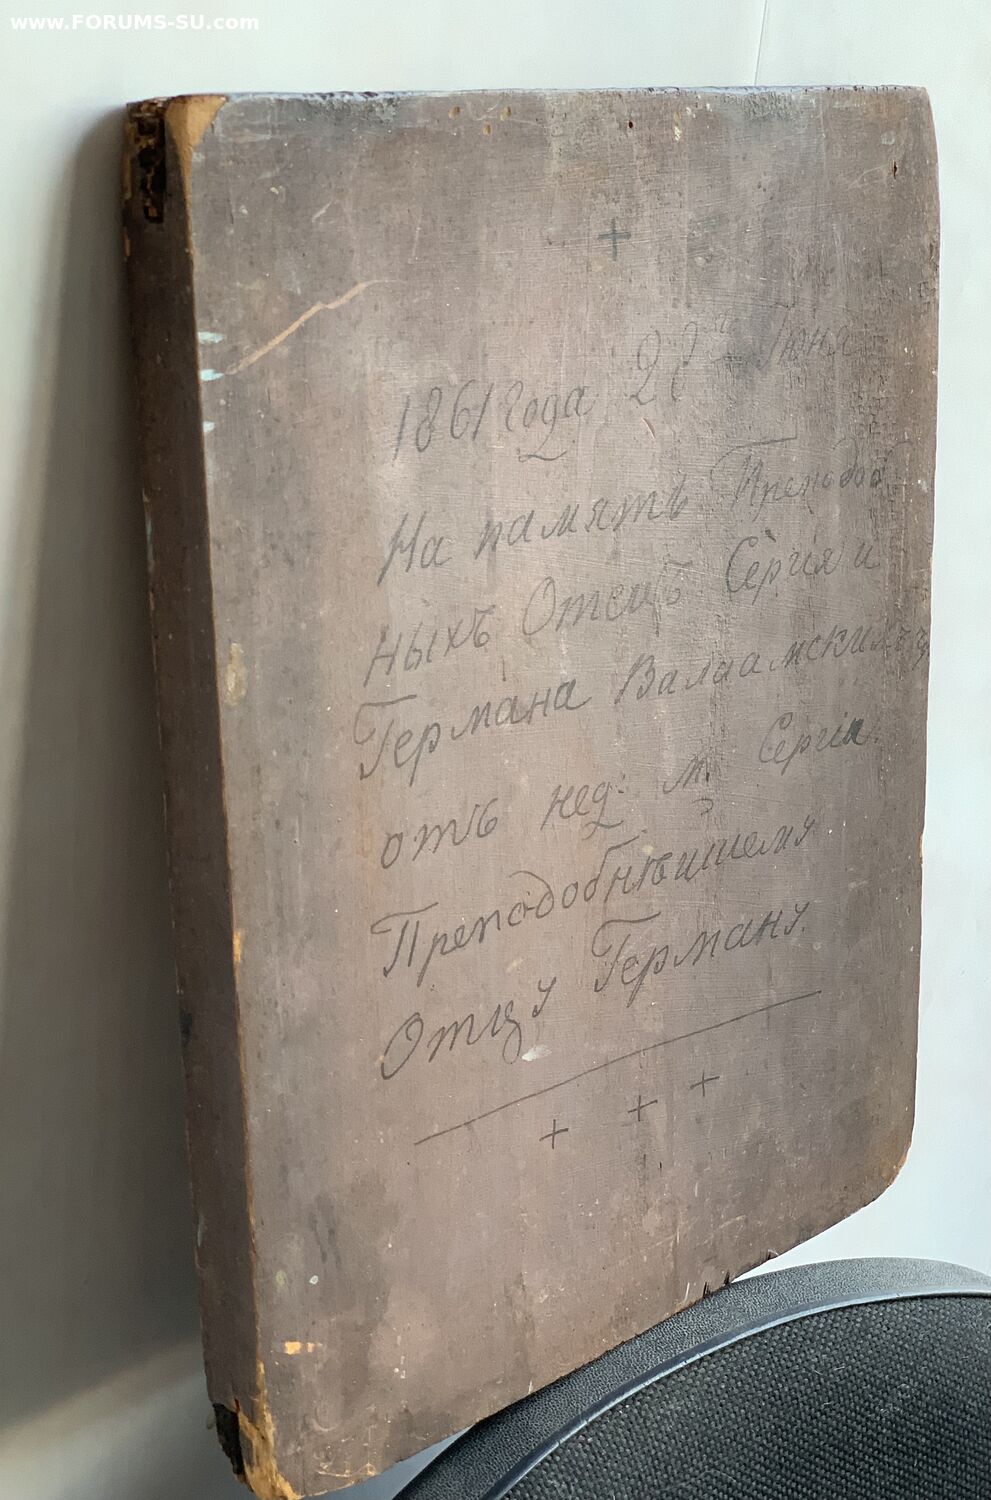 www.FORUMS-SU.com
+
1861 года 28го Іюня
На память Преподоб
ныхъ Отецъ Сергія и
Германа Валаамскихъ
отъ нед: м. Сергія.
Преподобнѣишему
Отцу Герману.
+ + +